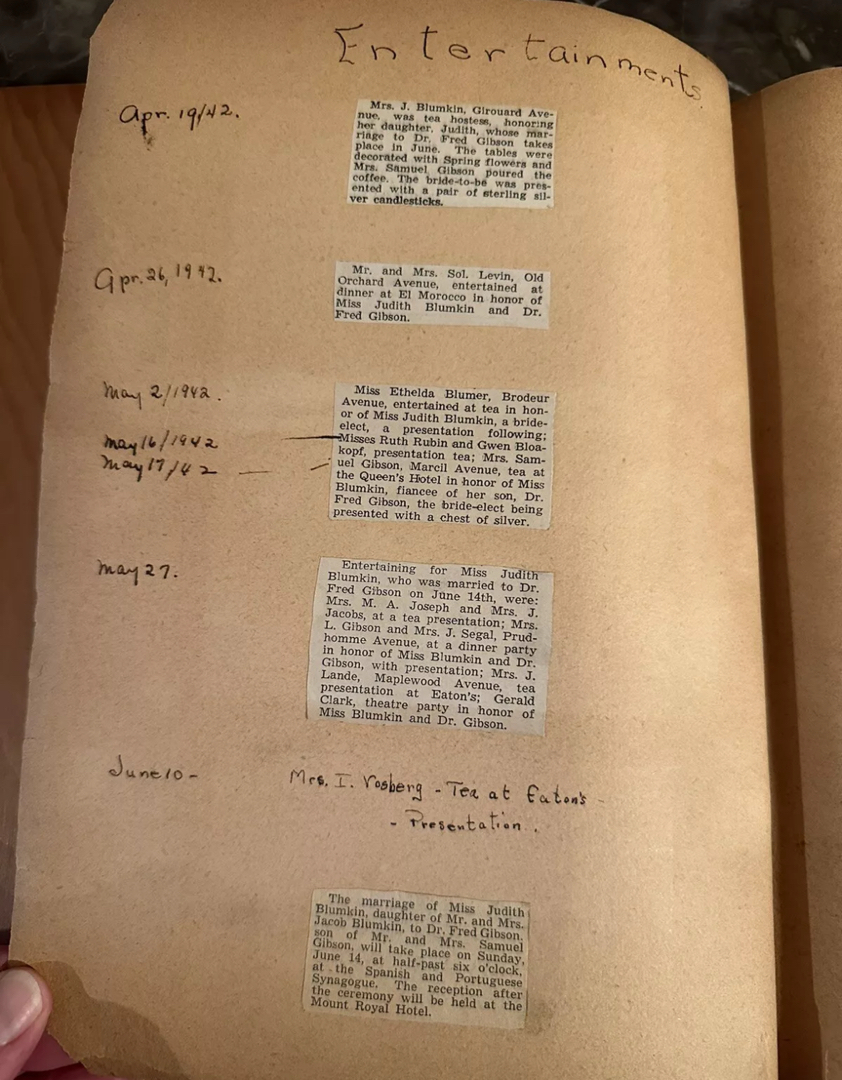 Entertainments
Apr. 19/42.
Mrs. J. Blumkin, Girouard Ave-
nue, was tea hostess, honoring
her daughter, Judith, whose mar-
riage to Dr. Fred Gibson takes
place in June. The tables were
decorated with Spring flowers and
Mrs. Samuel Gibson poured the
coffee. The bride-to-be was pres-
ented with a pair of sterling sil-
ver candlesticks.
Apr. 26, 1942.
Mr. and Mrs. Sol. Levin, Old
Orchard Avenue, entertained at
dinner at El Morocco in honor of
Miss Judith Blumkin and Dr.
Fred Gibson.
May 2/1942.
May 16/1942
May 17/42
Miss Ethelda Blumer, Brodeur
Avenue, entertained at tea in hon-
or of Miss Judith Blumkin, a bride-
elect, a presentation following;
Misses Ruth Rubin and Gwen Bloa-
kopf, presentation tea; Mrs. Sam-
uel Gibson, Marcil Avenue, tea at
the Queen's Hotel in honor of Miss
Blumkin, fiancee of her son, Dr.
Fred Gibson, the bride-elect being
presented with a chest of silver.
May 27.
Entertaining for Miss Judith
Blumkin, who was married to Dr.
Fred Gibson on June 14th, were:
Mrs. M. A. Joseph and Mrs. J.
Jacobs, at a tea presentation; Mrs.
L. Gibson and Mrs. J. Segal, Prud-
homme Avenue, at a dinner party
in honor of Miss Blumkin and Dr.
Gibson, with presentation; Mrs. J.
Lande, Maplewood Avenue, tea
presentation at Eaton's; Gerald
Clark, theatre party in honor of
Miss Blumkin and Dr. Gibson.
June 10 - Mrs. I. Vosberg - Tea at Eaton's -
- Presentation.
The marriage of Miss Judith
Blumkin, daughter of Mr. and Mrs.
Jacob Blumkin, to Dr. Fred Gibson,
son of Mr. and Mrs. Samuel
Gibson, will take place on Sunday,
June 14, at half-past six o'clock,
at the Spanish and Portuguese
Synagogue. The reception after
the ceremony will be held at the
Mount Royal Hotel.